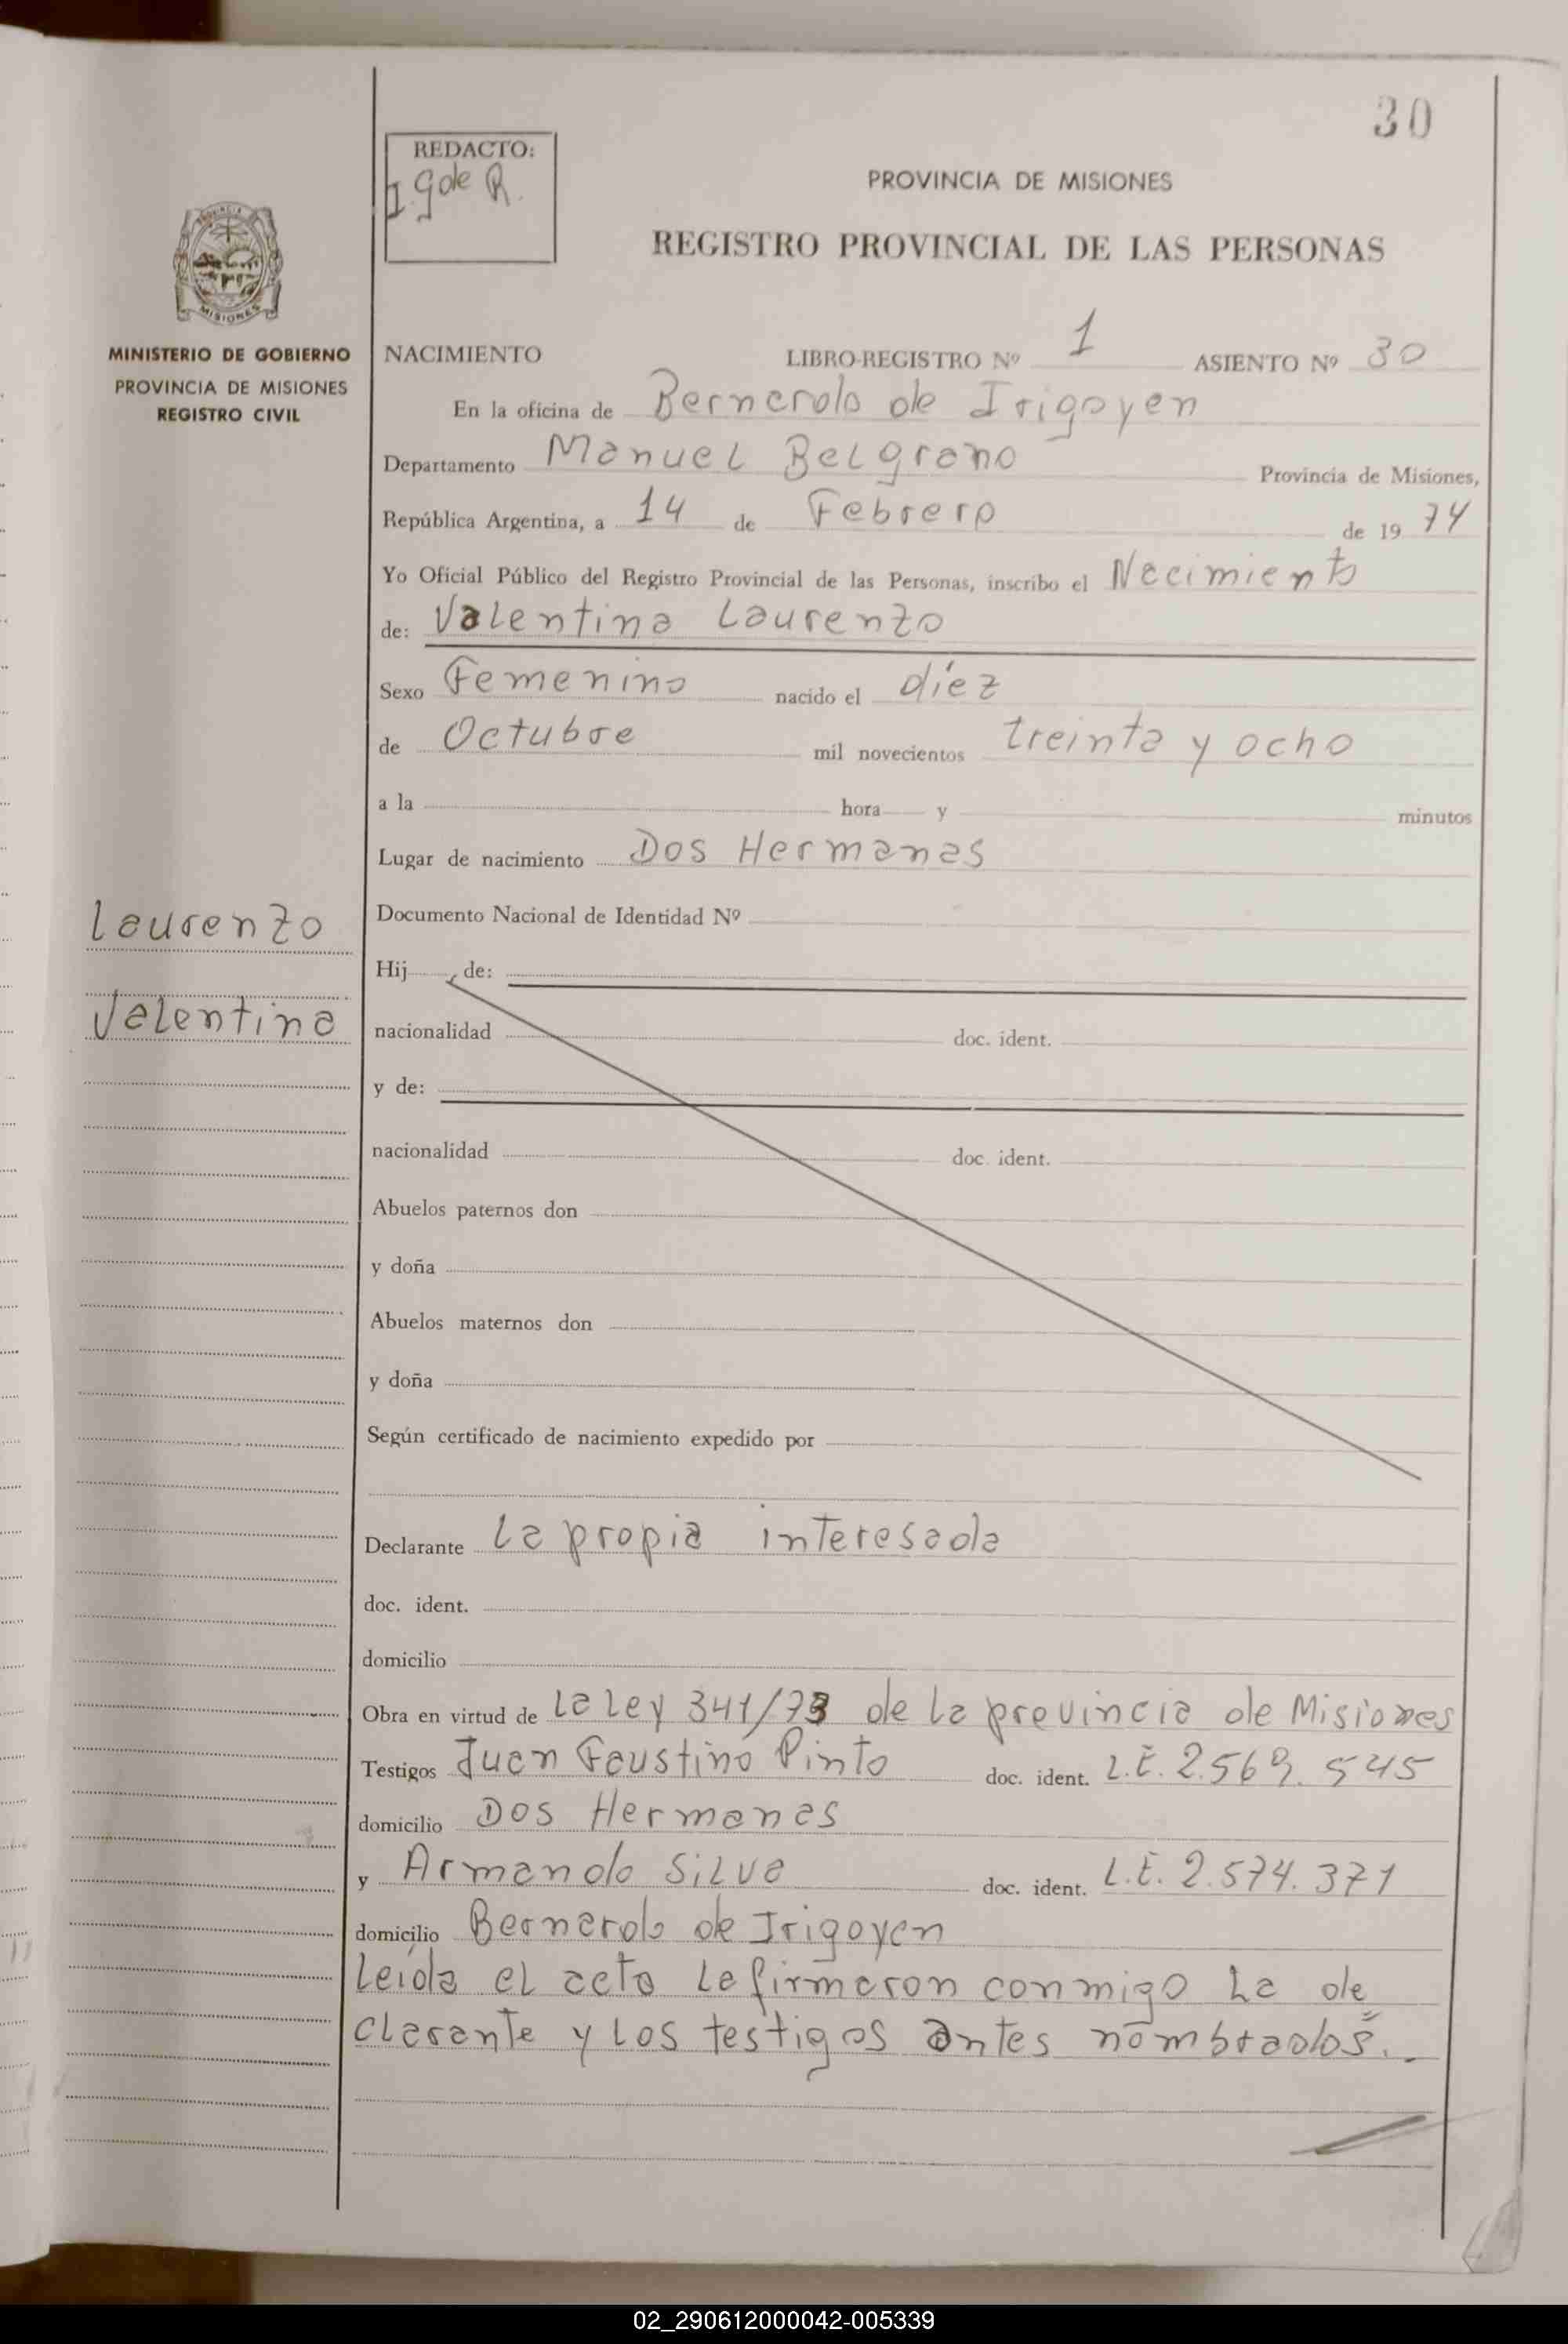 30
REDACTO:
I. G de R.
PROVINCIA DE MISIONES
REGISTRO PROVINCIAL DE LAS PERSONAS
PROVINCIA
MISIONES
MINISTERIO DE GOBIERNO
PROVINCIA DE MISIONES
REGISTRO CIVIL
NACIMIENTO LIBRO-REGISTRO Nº 1 ASIENTO Nº 30
En la oficina de Bernardo de Irigoyen
Departamento Manuel Belgrano Provincia de Misiones,
República Argentina, a 14 de Febrero de 1974
Yo Oficial Público del Registro Provincial de las Personas, inscribo el Nacimiento
de: Valentina Laurenzo
Sexo Femenino nacido el diez
de Octubre mil novecientos treinta y ocho
a la hora y minutos
Lugar de nacimiento Dos Hermanas
Documento Nacional de Identidad Nº
Laurenzo
Valentina
Hij de:
nacionalidad doc. ident.
y de:
nacionalidad doc. ident.
Abuelos paternos don
y doña
Abuelos maternos don
y doña
Según certificado de nacimiento expedido por
Declarante La propia interesada
doc. ident.
domicilio
Obra en virtud de la Ley 341/73 de la provincia de Misiones
Testigos Juan Faustino Pinto doc. ident. L.E. 2.569.545
domicilio Dos Hermanas
y Armando Silva doc. ident. L.E. 2.574.371
domicilio Bernardo de Irigoyen
Leida el acta la firmaron conmigo la de
clarante y los testigos antes nombrados.-
02_290612000042-005339